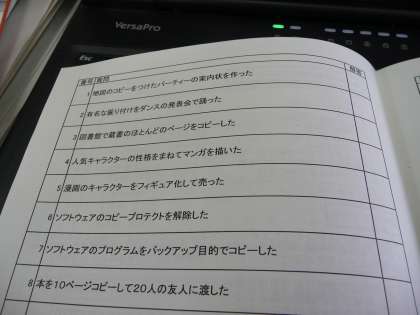 VersaPro
Esc
番号 質問 回答
1 地図のコピーをつけたパーティーの案内状を作った
2 有名な振り付けをダンスの発表会で踊った
3 図書館で蔵書のほとんどのページをコピーした
4 人気キャラクターの性格をまねてマンガを描いた
5 漫画のキャラクターをフィギュア化して売った
6 ソフトウェアのコピープロテクトを解除した
7 ソフトウェアのプログラムをバックアップ目的でコピーした
8 本を10ページコピーして20人の友人に渡した